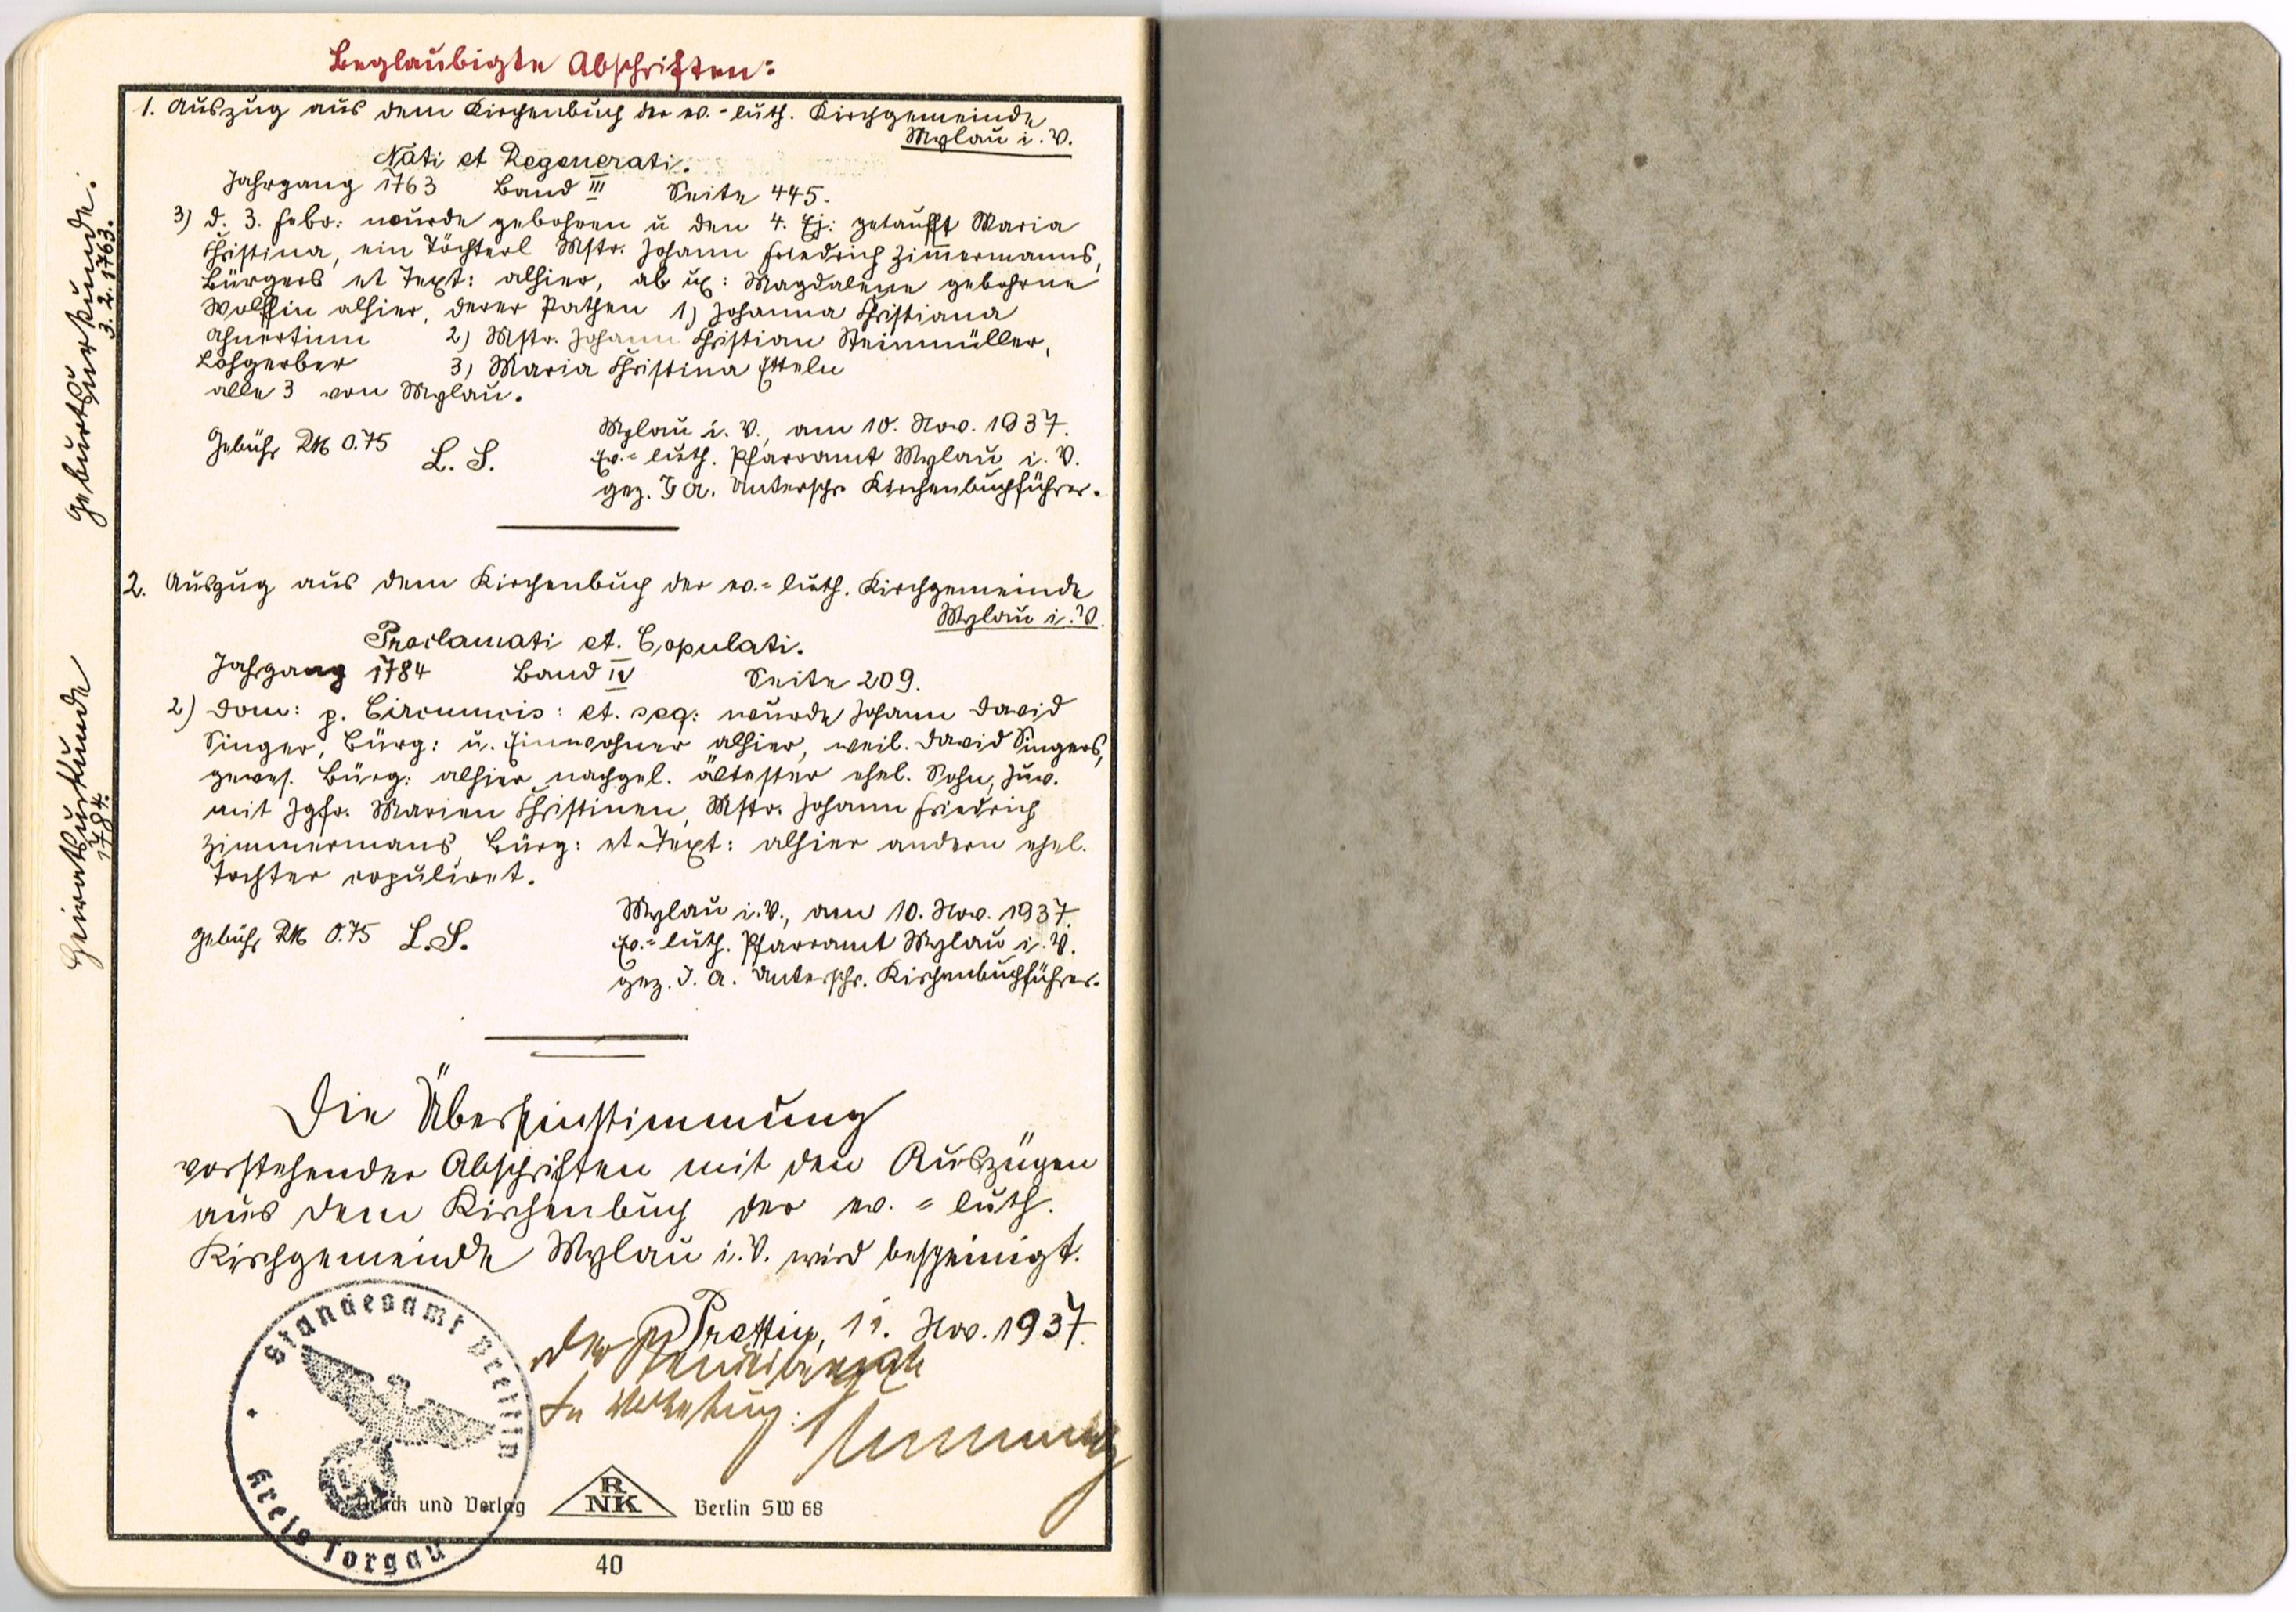 Beglaubigte Abschriften:
1. Auszug aus dem Kirchenbuch der ev.-luth. Kirchgemeinde
Mylau i. V.
Nati et Regenerati.
Jahrgang 1763 Band III Seite 445.
3) d. 3. Febr: wurde gebohren u den 4. Ej: getaufft Maria
Christina, ein Töchterl Mstr. Johann Friedrich Zimmermanns,
Bürgers et Text: alhier, ab ux: Magdalene gebohrne
Wolffin alhier, derer Pathen 1) Johanna Christiana
Ahnertinn 2) Mstr. Johann Christian Steinmüller,
Lohgerber 3) Maria Christina Etteln
alle 3 von Mylau.
Mylau i. V., am 10. Nov. 1937.
Gebühr RM 0.75 L. S. Ev.-luth. Pfarramt Mylau i. V.
gez. I. A. Unterschr. Kirchenbuchführer.
Geburtsurkunde.
3. 2. 1763.
2. Auszug aus dem Kirchenbuch der ev.-luth. Kirchgemeinde
Mylau i. V.
Proclamati et. Copulati.
Jahrgang 1784 Band IV Seite 209.
2) Dom: p. Circumcis: et. seq: wurde Johann David
Singer, Bürg: u. Einwohner alhier, weil. David Singers,
gewes. Bürg: alhier nachgel. ältester ehel. Sohn, Juv.
mit Jgfr. Marien Christinen, Mstr. Johann Friedrich
Zimmermans Bürg: et Text: alhier andern ehel.
Tochter copuliret.
Mylau i. V., am 10. Nov. 1937.
Gebühr RM 0.75 L. S. Ev.-luth. Pfarramt Mylau i. V.
gez. I. A. Unterschr. Kirchenbuchführer.
Heiratsurkunde
1784.
Die Übereinstimmung
vorstehender Abschriften mit den Auszügen
aus dem Kirchenbuch der ev.-luth.
Kirchgemeinde Mylau i. V. wird bescheinigt.
Prettin, 11. Nov. 1937.
Der Standesbeamte
In Vertretung:
Standesamt Prettin
Kreis Torgau
Druck und Verlag RNK Berlin SW 68
40